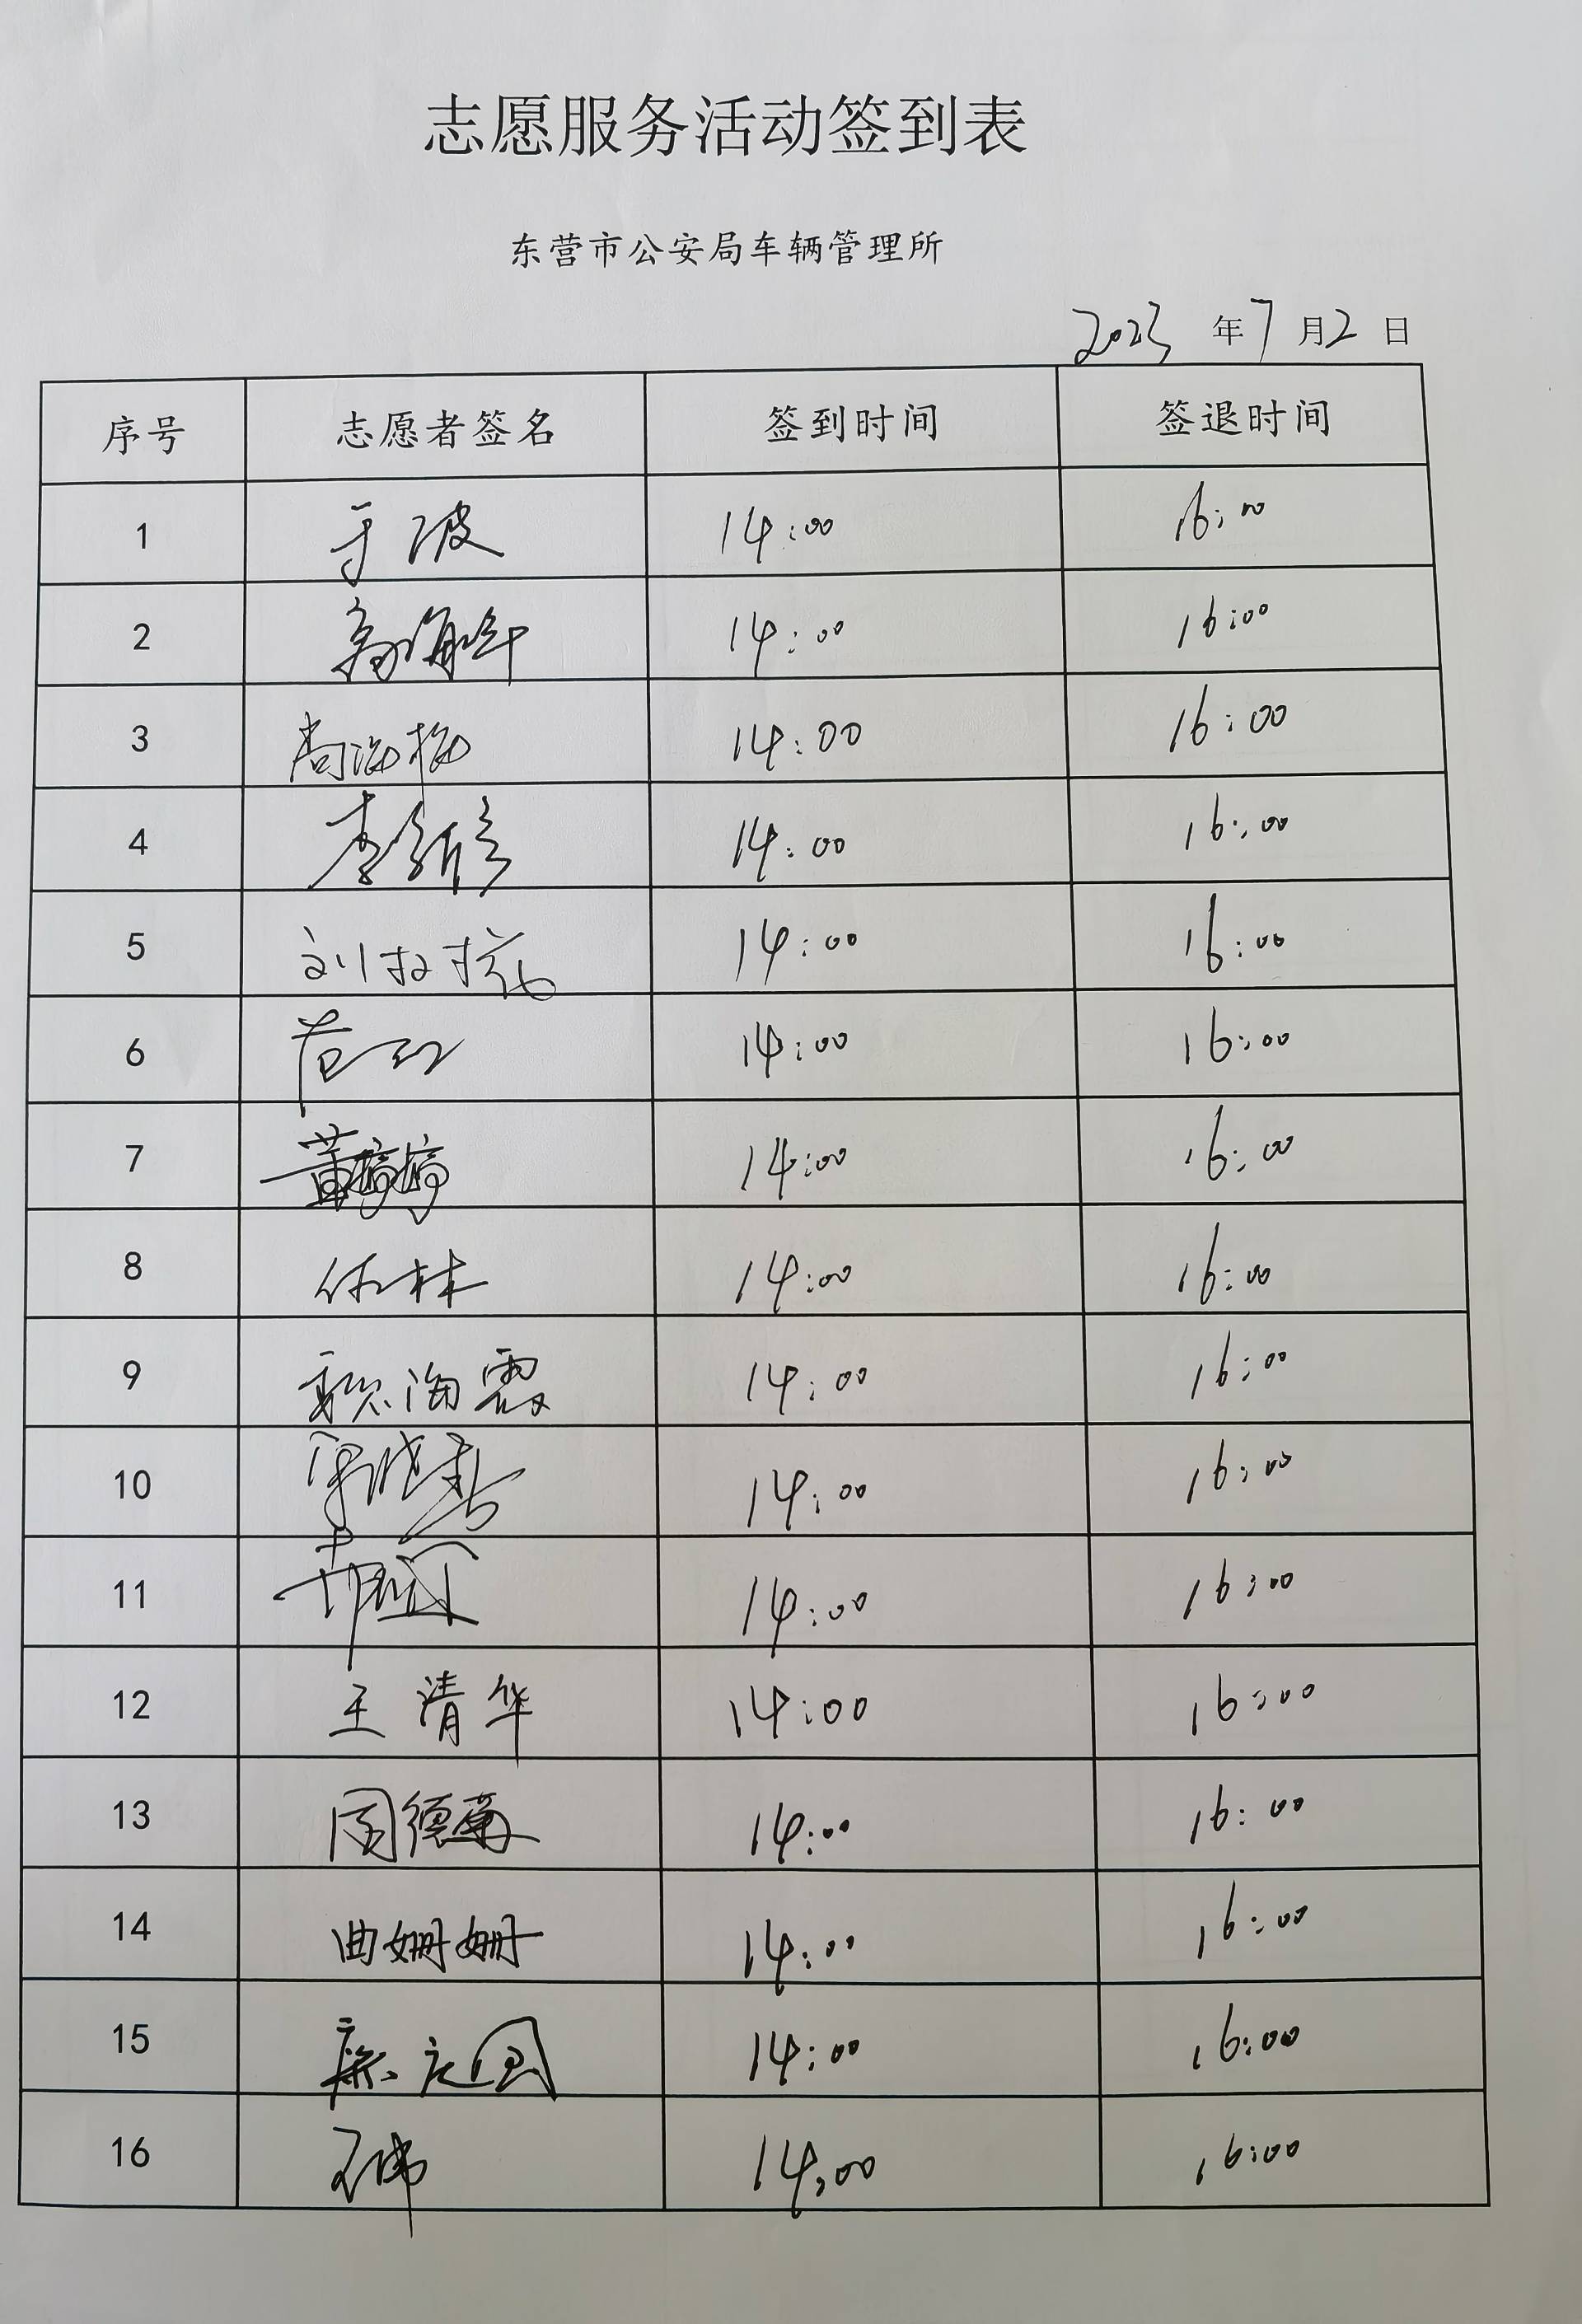 志愿服务活动签到表
东营市公安局车辆管理所
2023 年 7 月 2 日
序号 志愿者签名 签到时间 签退时间
1 于波 14:00 16:00
2 14:00 16:00
3 尚海梅 14:00 16:00
4 14:00 16:00
5 刘 14:00 16:00
6 范红 14:00 16:00
7 董婷婷 14:00 16:00
8 林 14:00 16:00
9 海霞 14:00 16:00
10 14:00 16:00
11 14:00 16:00
12 王清华 14:00 16:00
13 周德菊 14:00 16:00
14 曲姗姗 14:00 16:00
15 14:00 16:00
16 石伟 14:00 16:00